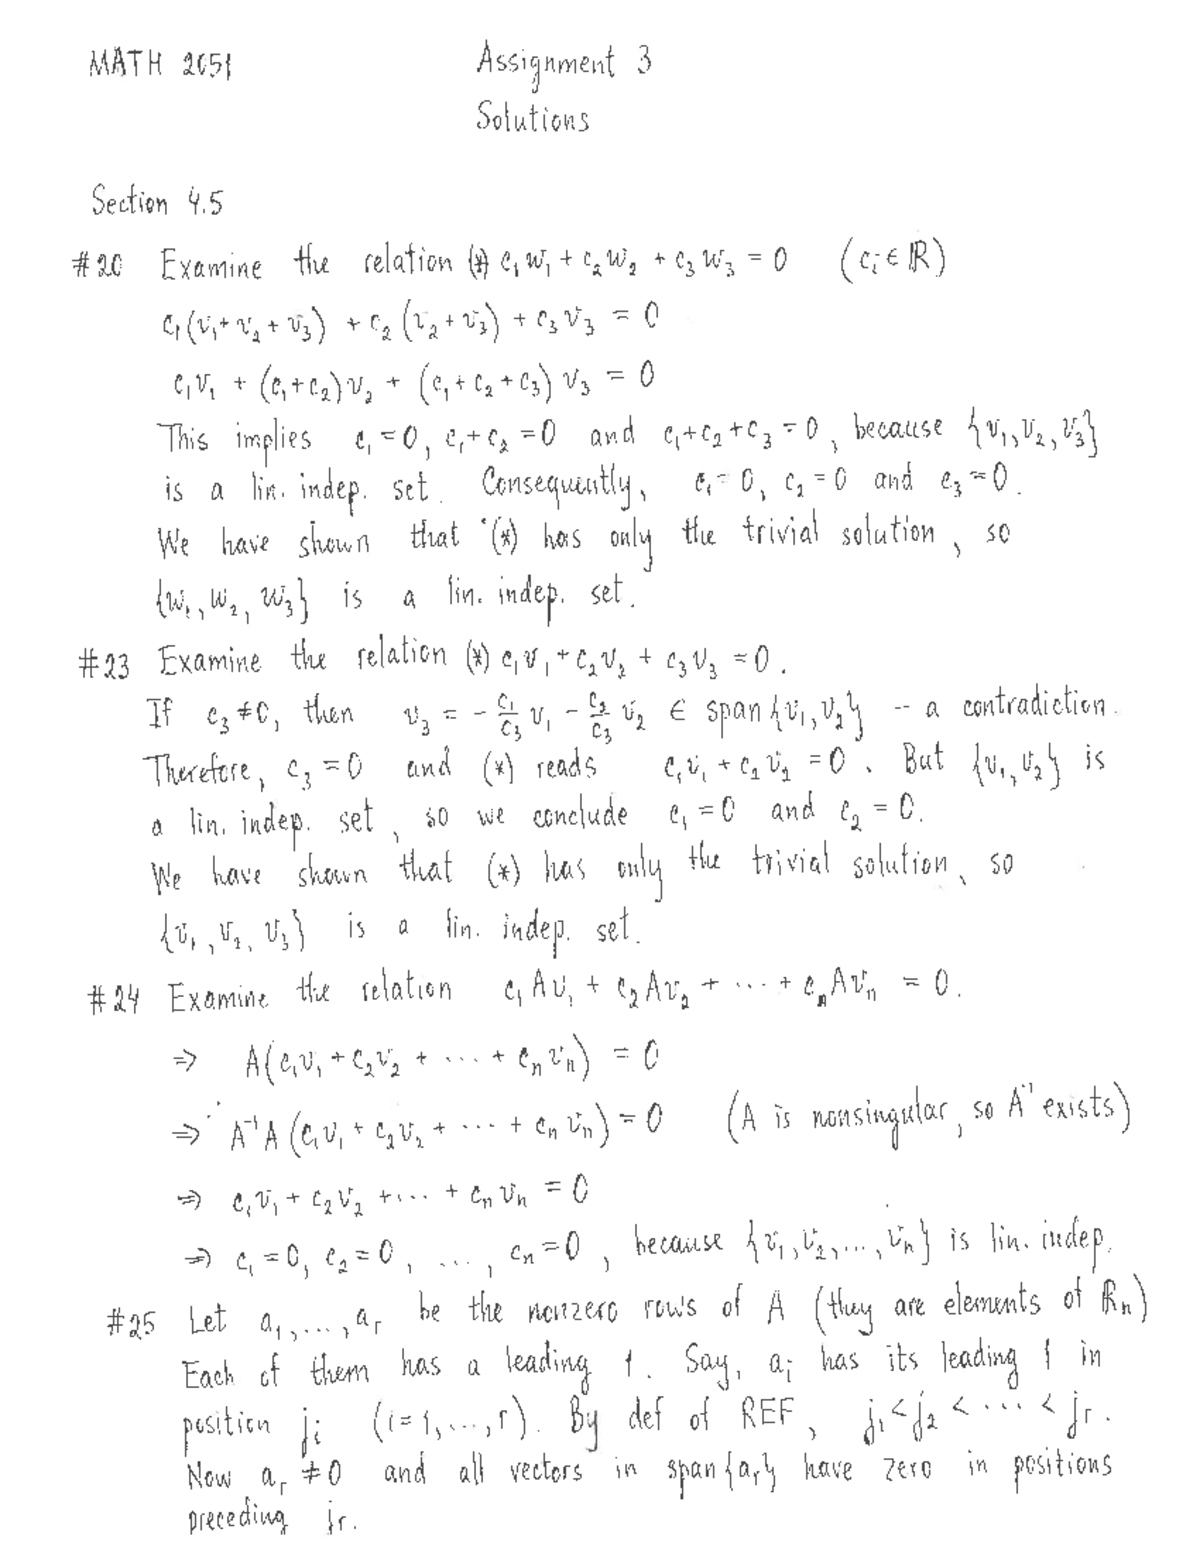 MATH 2051 Assignment 3
Solutions
Section 4.5
#20 Examine the relation (*) c₁w₁ + c₂w₂ + c₃w₃ = 0 (cᵢ ∈ ℝ)
c₁(v₁+v₂+v₃) + c₂(v₂+v₃) + c₃v₃ = 0
c₁v₁ + (c₁+c₂)v₂ + (c₁+c₂+c₃)v₃ = 0
This implies c₁=0, c₁+c₂=0 and c₁+c₂+c₃=0, because {v₁,v₂,v₃}
is a lin. indep. set. Consequently, c₁=0, c₂=0 and c₃=0.
We have shown that (*) has only the trivial solution, so
{w₁, w₂, w₃} is a lin. indep. set.
#23 Examine the relation (*) c₁v₁+c₂v₂ + c₃v₃ = 0.
If c₃≠0, then v₃ = -c₁/c₃ v₁ - c₂/c₃ v₂ ∈ span{v₁,v₂} -- a contradiction.
Therefore, c₃=0 and (*) reads c₁v₁ + c₂v₂ = 0. But {v₁,v₂} is
a lin. indep. set, so we conclude c₁=0 and c₂=0.
We have shown that (*) has only the trivial solution, so
{v₁, v₂, v₃} is a lin. indep. set.
#24 Examine the relation c₁Av₁ + c₂Av₂ + ··· + cₙAvₙ = 0.
⇒ A(c₁v₁+c₂v₂ + ··· + cₙvₙ) = 0
⇒ A⁻¹A(c₁v₁ + c₂v₂ + ··· + cₙvₙ) = 0 (A is nonsingular, so A⁻¹ exists)
⇒ c₁v₁ + c₂v₂ +··· + cₙvₙ = 0
⇒ c₁=0, c₂=0, ..., cₙ=0, because {v₁,v₂,...,vₙ} is lin. indep.
#25 Let a₁,...,aᵣ be the nonzero rows of A (they are elements of ℝₙ)
Each of them has a leading 1. Say, aᵢ has its leading 1 in
position jᵢ (i=1,...,r). By def of REF, j₁<j₂< ··· <jᵣ.
Now aᵣ ≠0 and all vectors in span{aᵣ} have zero in positions
preceding jᵣ.